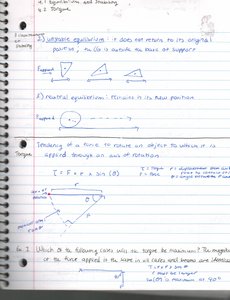 4.1 Equilibrium and Stability
4.2 Torque
2.) unstable equilibrium: it does not return to its original
position, falls outside the base of support
Fsupport
3.) neutral equilibrium: remains in its new position
Fsupport
Torque
Tendency of a force to rotate an object to which it is
applied through an axis of rotation.
τ = F × r × sin (θ)
τ = Torque
F = Force
r
θ
F
Ex 1. Which of the following cases will the torque be maximum? The magnitude
of the force applied is the same in all cases and beams are identical
τ = F × r × sin θ
r must be largest